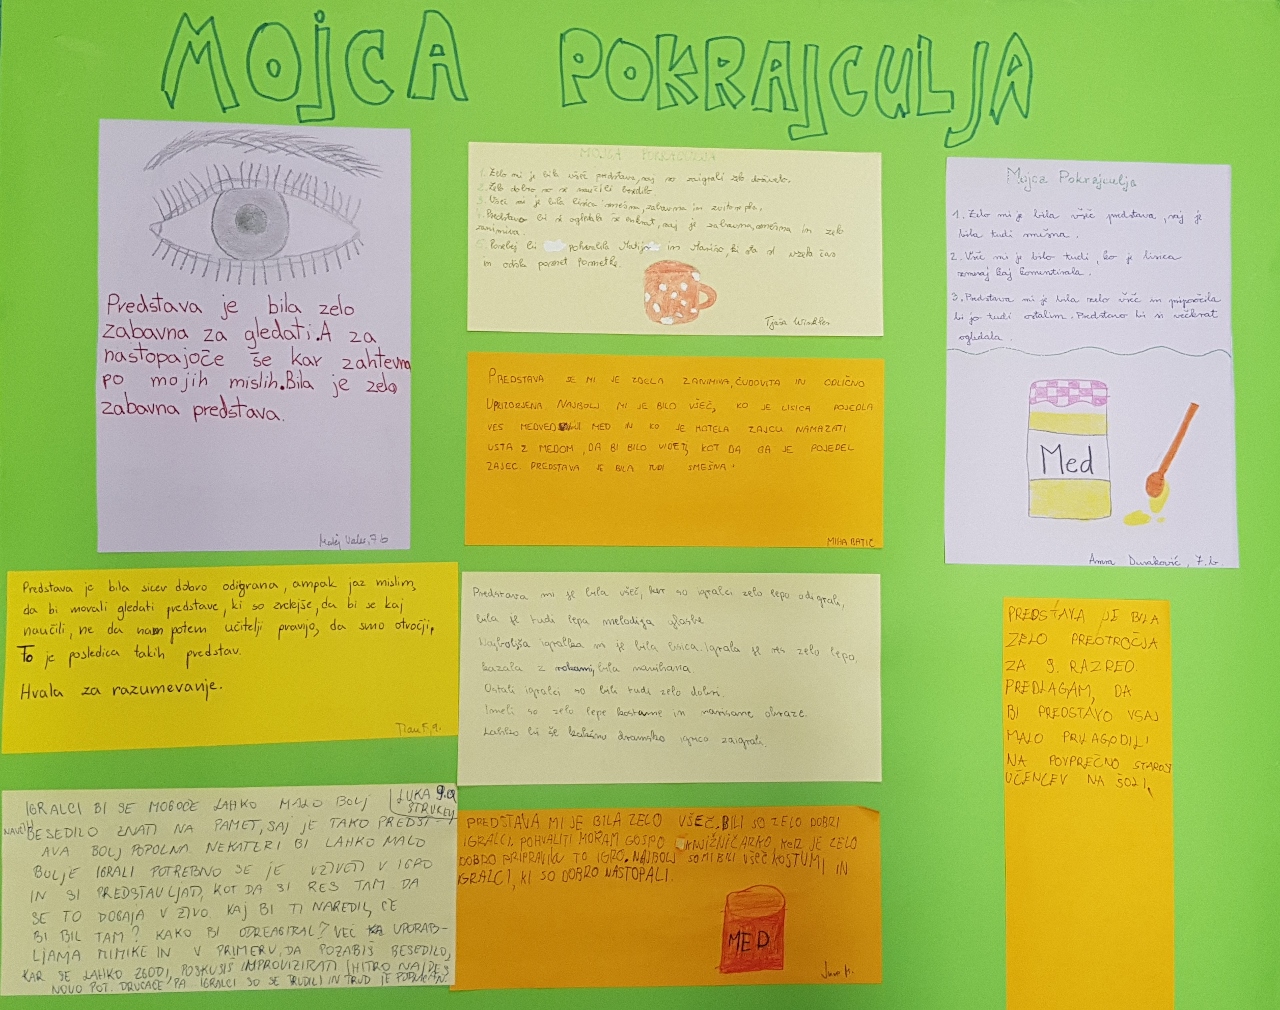 MOJCA POKRAJCULJA
Predstava je bila zelo
zabavna za gledati. A za
nastopajoče še kar zahtevna
po mojih mislih. Bila je zelo
zabavna predstava.
Matej 7.b
MOJCA POKRAJCULJA
1. Zelo mi je bila všeč predstava, saj so zaigrali zelo doživeto.
2. Zelo dobro so se naučili besedilo.
3. Všeč mi je bila lisica smešna, zabavna in zvitorepka.
4. Predstavo bi si ogledala še enkrat, saj je zabavna, smešna in zelo
zanimiva.
5. Posebej bi pohvalila Matija in Marišo, ki sta si vzela čas
in odšla pomest pometke.
Tjaša Winkler
Mojca Pokrajculja
1. Zelo mi je bila všeč predstava, saj je
bila tudi smešna.
2. Všeč mi je bilo tudi, ko je lisica
zmeraj kaj komentirala.
3. Predstava mi je bila zelo všeč in priporočila
bi jo tudi ostalim. Predstavo bi si večkrat
ogledala.
Med
Amna Duraković, 7.b
PREDSTAVA SE MI JE ZDELA ZANIMIVA, ČUDOVITA IN ODLIČNO
UPRIZORJENA NAJBOLJ MI JE BILO VŠEČ, KO JE LISICA POJEDLA
VES MEDVEDOV MED IN KO JE HOTELA ZAJCU NAMAZATI
USTA Z MEDOM, DA BI BILO VIDETI, KOT DA GA JE POJEDEL
ZAJEC. PREDSTAVA JE BILA TUDI SMEŠNA.
MIHA BATIČ
Predstava je bila sicer dobro odigrana, ampak jaz mislim,
da bi morali gledati predstave, ki so zrelejše, da bi se kaj
naučili, ne da nam potem učitelji pravijo, da smo otročji.
To je posledica takih predstav.
Hvala za razumevanje.
Tian F, 9.
Predstava mi je bila všeč, ker so igralci zelo lepo odigrali,
bila je tudi lepa melodija glasbe.
Najboljša igralka mi je bila lisica. Igrala je res zelo lepo,
kazala z rokami, bila navihana.
Ostali igralci so bili tudi zelo dobri.
Imeli so zelo lepe kostume in narisane obraze.
Lahko bi še kakšno dramsko igrico zaigrali.
PREDSTAVA JE BILA
ZELO PREOTROČJA
ZA 9. RAZRED.
PREDLAGAM, DA
BI PREDSTAVO VSAJ
MALO PRILAGODILI
NA POVPREČNO STAROST
UČENCEV NA ŠOLI.
LUKA 9.a
ŠTRUKELJ
IGRALCI BI SE MOGOČE LAHKO MALO BOLJ
NAUČILI BESEDILO ZNATI NA PAMET, SAJ JE TAKO PREDST-
AVA BOLJ POPOLNA. NEKATERI BI LAHKO MALO
BOLJE IGRALI POTREBNO SE JE VŽIVETI V IGRO
IN SI PREDSTAVLJATI, KOT DA SI RES TAM. DA
SE TO DOGAJA V ŽIVO. KAJ BI TI NAREDIL, ČE
BI BIL TAM? KAKO BI ODREAGIRAL? VEČ UPORAB-
LJAMA MIMIKE IN V PRIMERU, DA POZABIŠ BESEDILO,
KAR SE LAHKO ZGODI, POSKUSIŠ IMPROVIZIRATI (HITRO NAJDEŠ
NOVO POT. DRUGAČE PA IGRALCI SO SE TRUDILI IN TRUD JE
PREDSTAVA MI JE BILA ZELO VŠEČ. BILI SO ZELO DOBRI
IGRALCI. POHVALITI MORAM GOSPO KNJIŽNIČARKO, KER JE ZELO
DOBRO PRIPRAVILA TO IGRO. NAJBOLJ SO MI BILI VŠEČ KOSTUMI IN
IGRALCI, KI SO DOBRO NASTOPALI.
MED